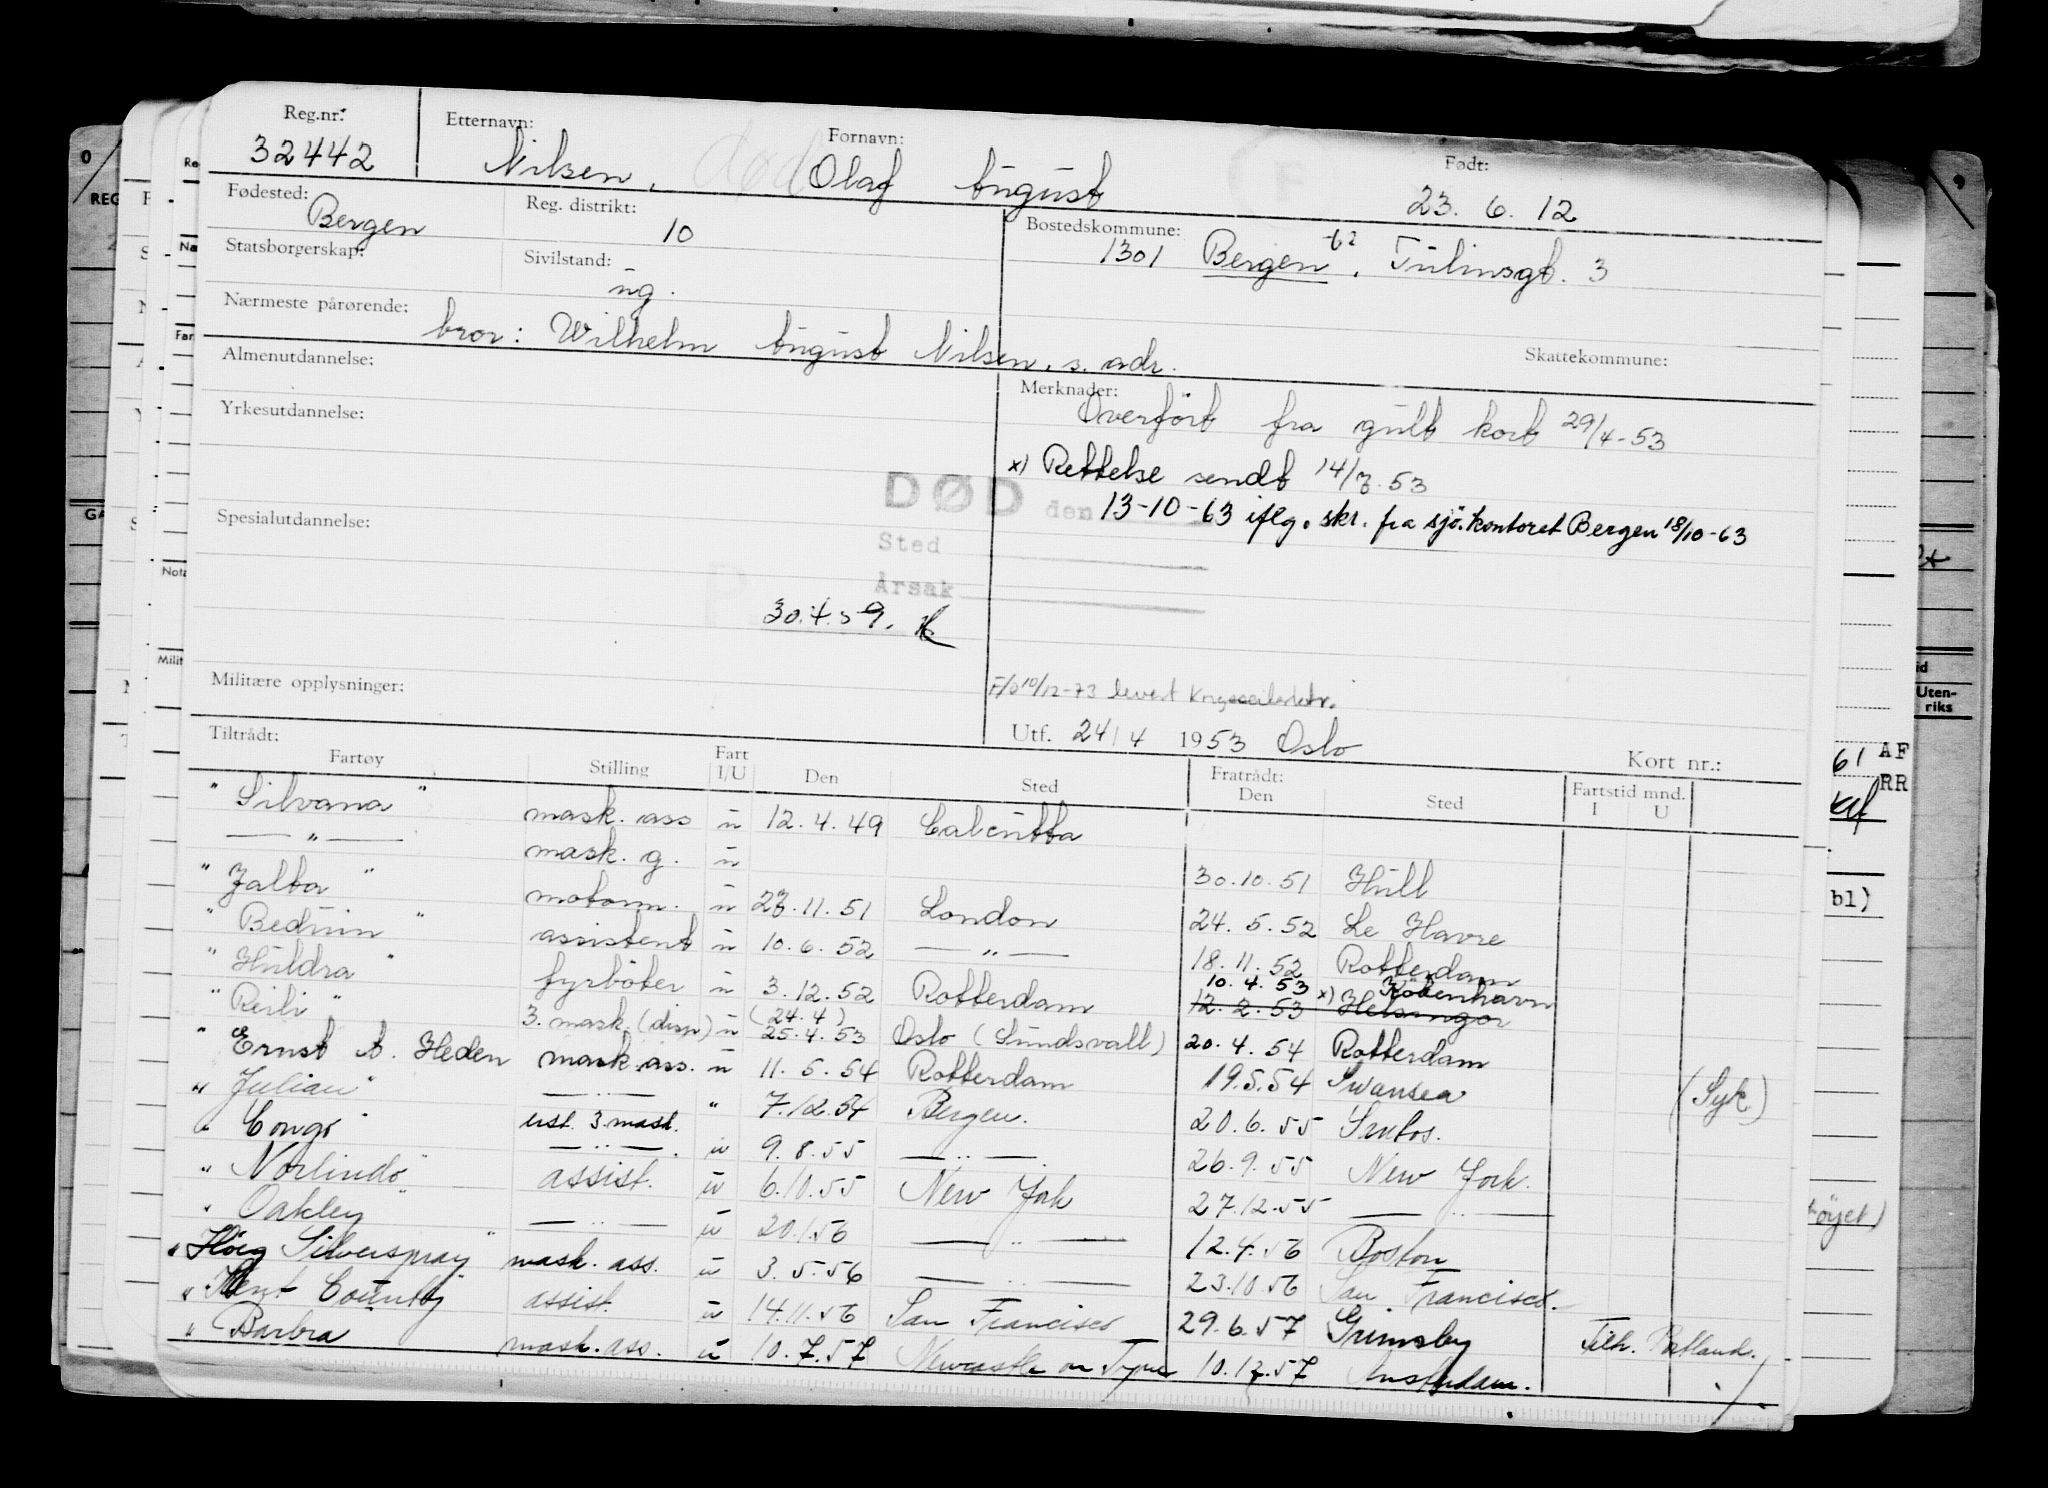 Reg.nr: Etternavn: Fornavn: Født:
32442 Nilsen, død Olaf August 23. 6. 12
Fødested: Reg. distrikt: Bostedskommune:
Bergen 10 1301 Bergen -62, Tulinsgt. 3
Statsborgerskap: Sivilstand:
ug.
Nærmeste pårørende: Skattekommune:
bror: Wilhelm August Nilsen, s. adr.
Almenutdannelse: Merknader:
Overført fra gult kort 29/4-53
Yrkesutdannelse:
x) Rettelse sendt 14/7.53
DØD den 13-10-63 iflg. skr. fra sjø.kontoret Bergen 18/10-63
Spesialutdannelse:
Sted
Årsak
30.4.59.
Militære opplysninger:
F/O 10/12-73 levert
Utf. 24/4 1953 Oslo
Tiltrådt: Fratrådt: Kort nr.:
Fartøy Stilling Fart I/U Den Sted Den Sted Fartstid mnd. I U
" Silvana " mask. ass u 12.4.49 Calcutta
— " — mask. g. u 30.10.51 Hull
" Jalta " motorm. u 23.11.51 London 24.5.52 Le Havre
" Beduin " assistent u 10.6.52 — " — 18.11.52 Rotterdam
" Huldra " fyrbøter u 3.12.52 Rotterdam 10.4.53 x) København
12.2.53 Helsingør
" Reili " 3. mask. (disp) u (24.4) 25.4.53 Oslo (Sundsvall) 20.4.54 Rotterdam
" Ernst A. Heden mask. ass. u 11.5.54 Rotterdam 19.5.54 Swansea (Syk)
" Julian " — " — " 7.12.54 Bergen. 20.6.55 Santos.
ust. 3. mask.
" Congo " — " — . u 9.8.55 — " — 26.9.55 New York.
" Norlindo " assist. u 6.10.55 New York 27.12.55 — " —
" Oakley " — " — u 20.1.56 — " — 12.4.56 Boston
" Höeg Silverspray " mask. ass. u 3.5.56 — " — 23.10.56 San Francisco.
" Kent County " assist. u 14.11.56 San Francisco 29.6.57 Grimsby Tilh. Portland.
" Barbra mask. ass. u 10.7.57 Newcastle on Tyne 10.12.57 Amsterdam.